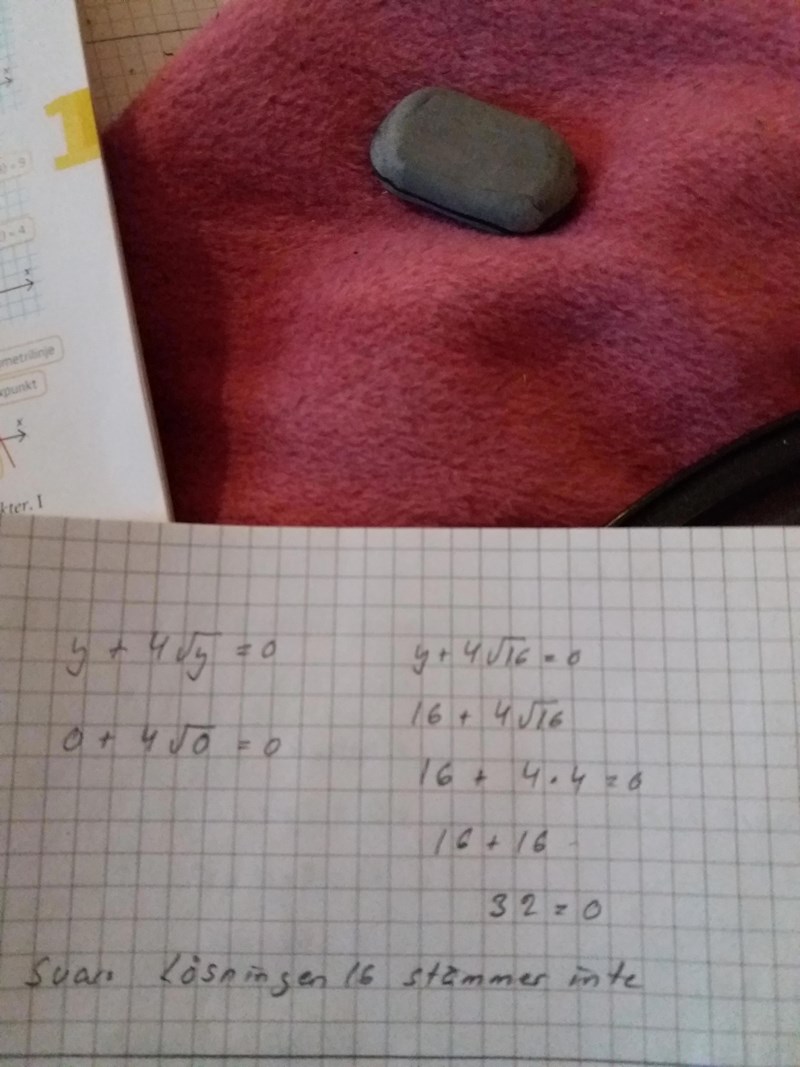 x
1
0 = 9
0 = 4
x
metrilinje
kpunkt
x
kter. I
y + 4√y = 0
0 + 4√0 = 0
y + 4√16 = 0
16 + 4√16
16 + 4 · 4 = 0
16 + 16
32 = 0
Svar. Lösningen 16 stämmer inte